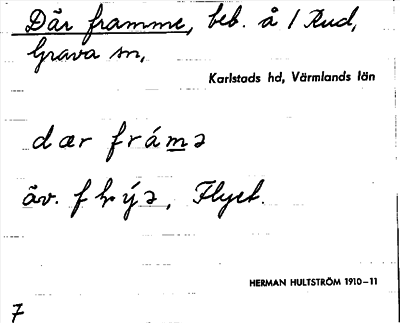 Där framme, beb. å 1 Rud,
Grava sn,
Karlstads hd, Värmlands län
dær frámə
äv.
HERMAN HULTSTRÖM 1910–11
7